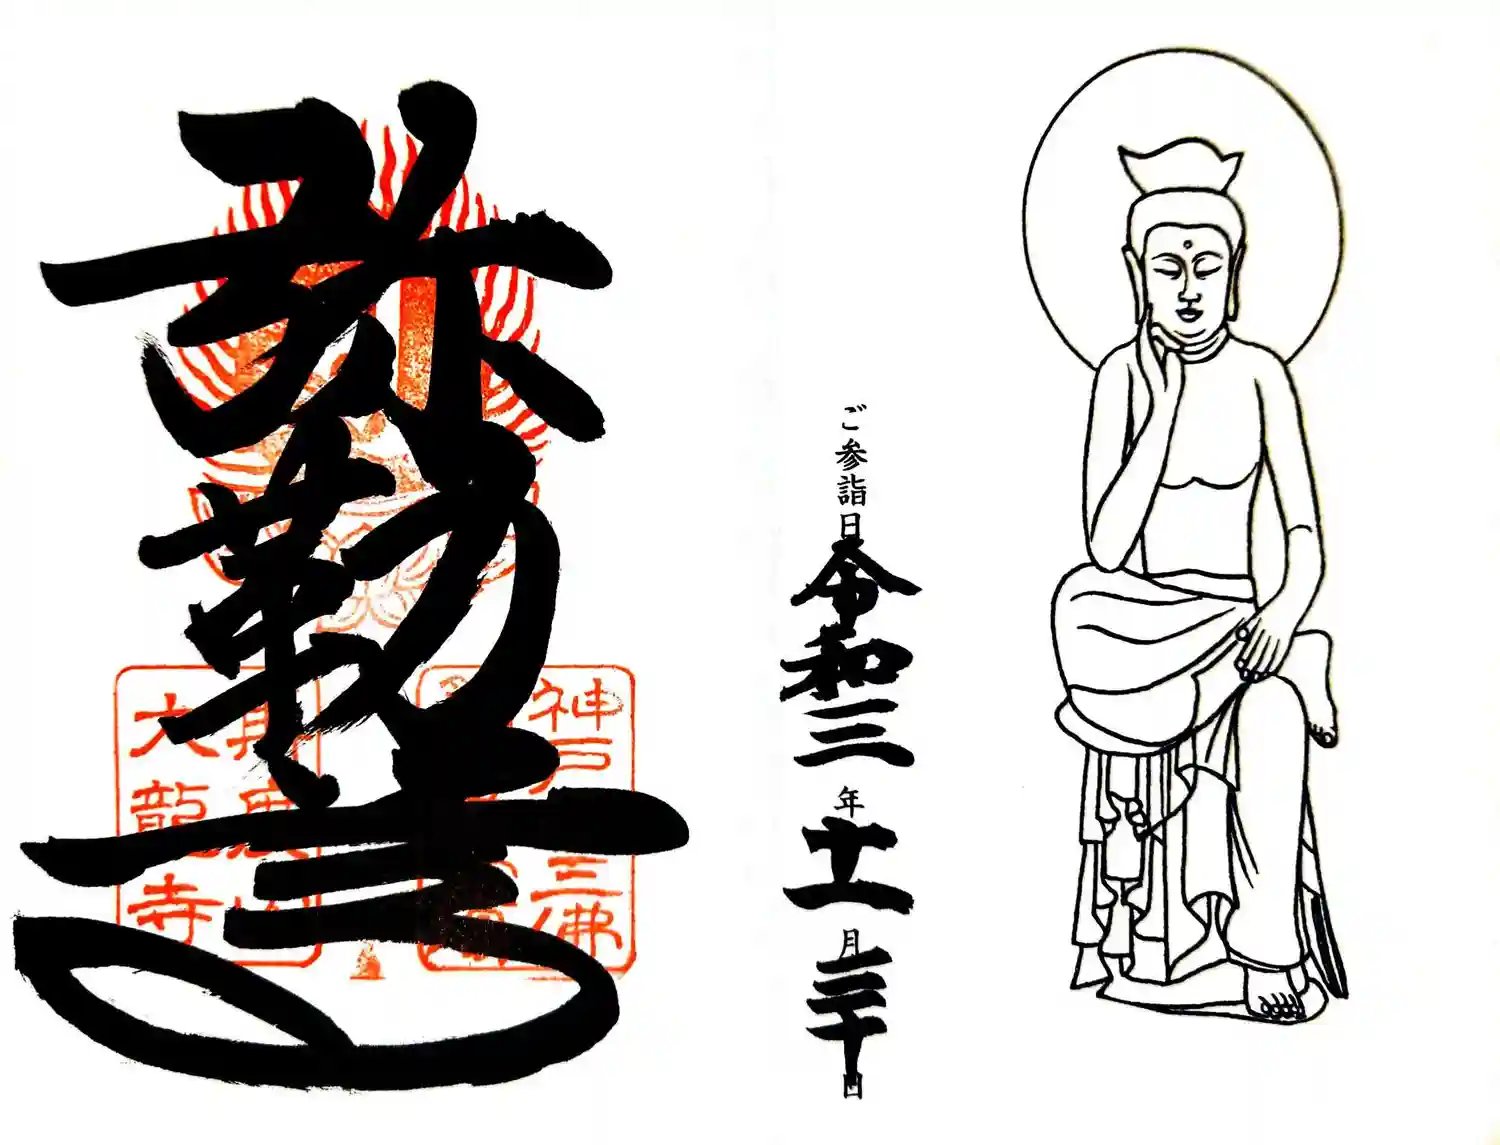 弥勒
神戸十三佛
再度山
大龍寺
ご参詣日令和三年十一月三十日